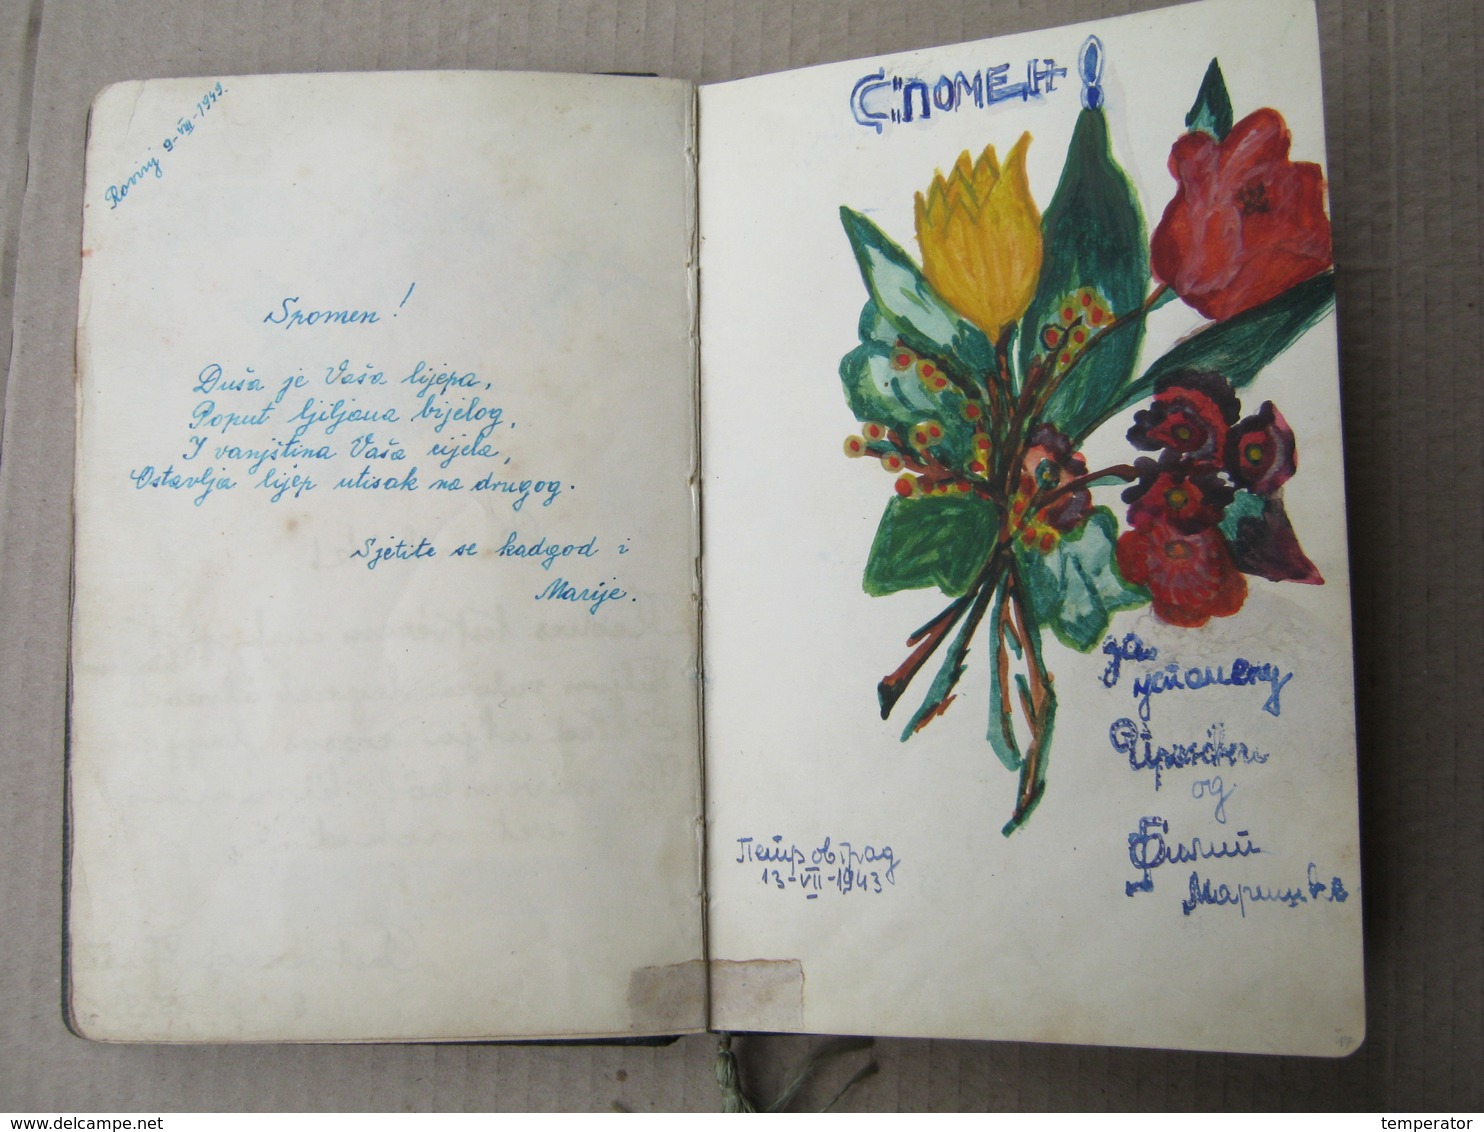 Rovinj 9-VIII-1949.
Spomen!
Duša je Vaša lijepa,
Poput ljiljana bijelog,
I vanjština Vaša cijela,
Ostavlja lijep utisak na drugog.
Sjetite se kadgod i
Marije.
СПОМЕН!
за
успомену
од
Петровград
13-VII-1943
17
delcampe.net
temperator